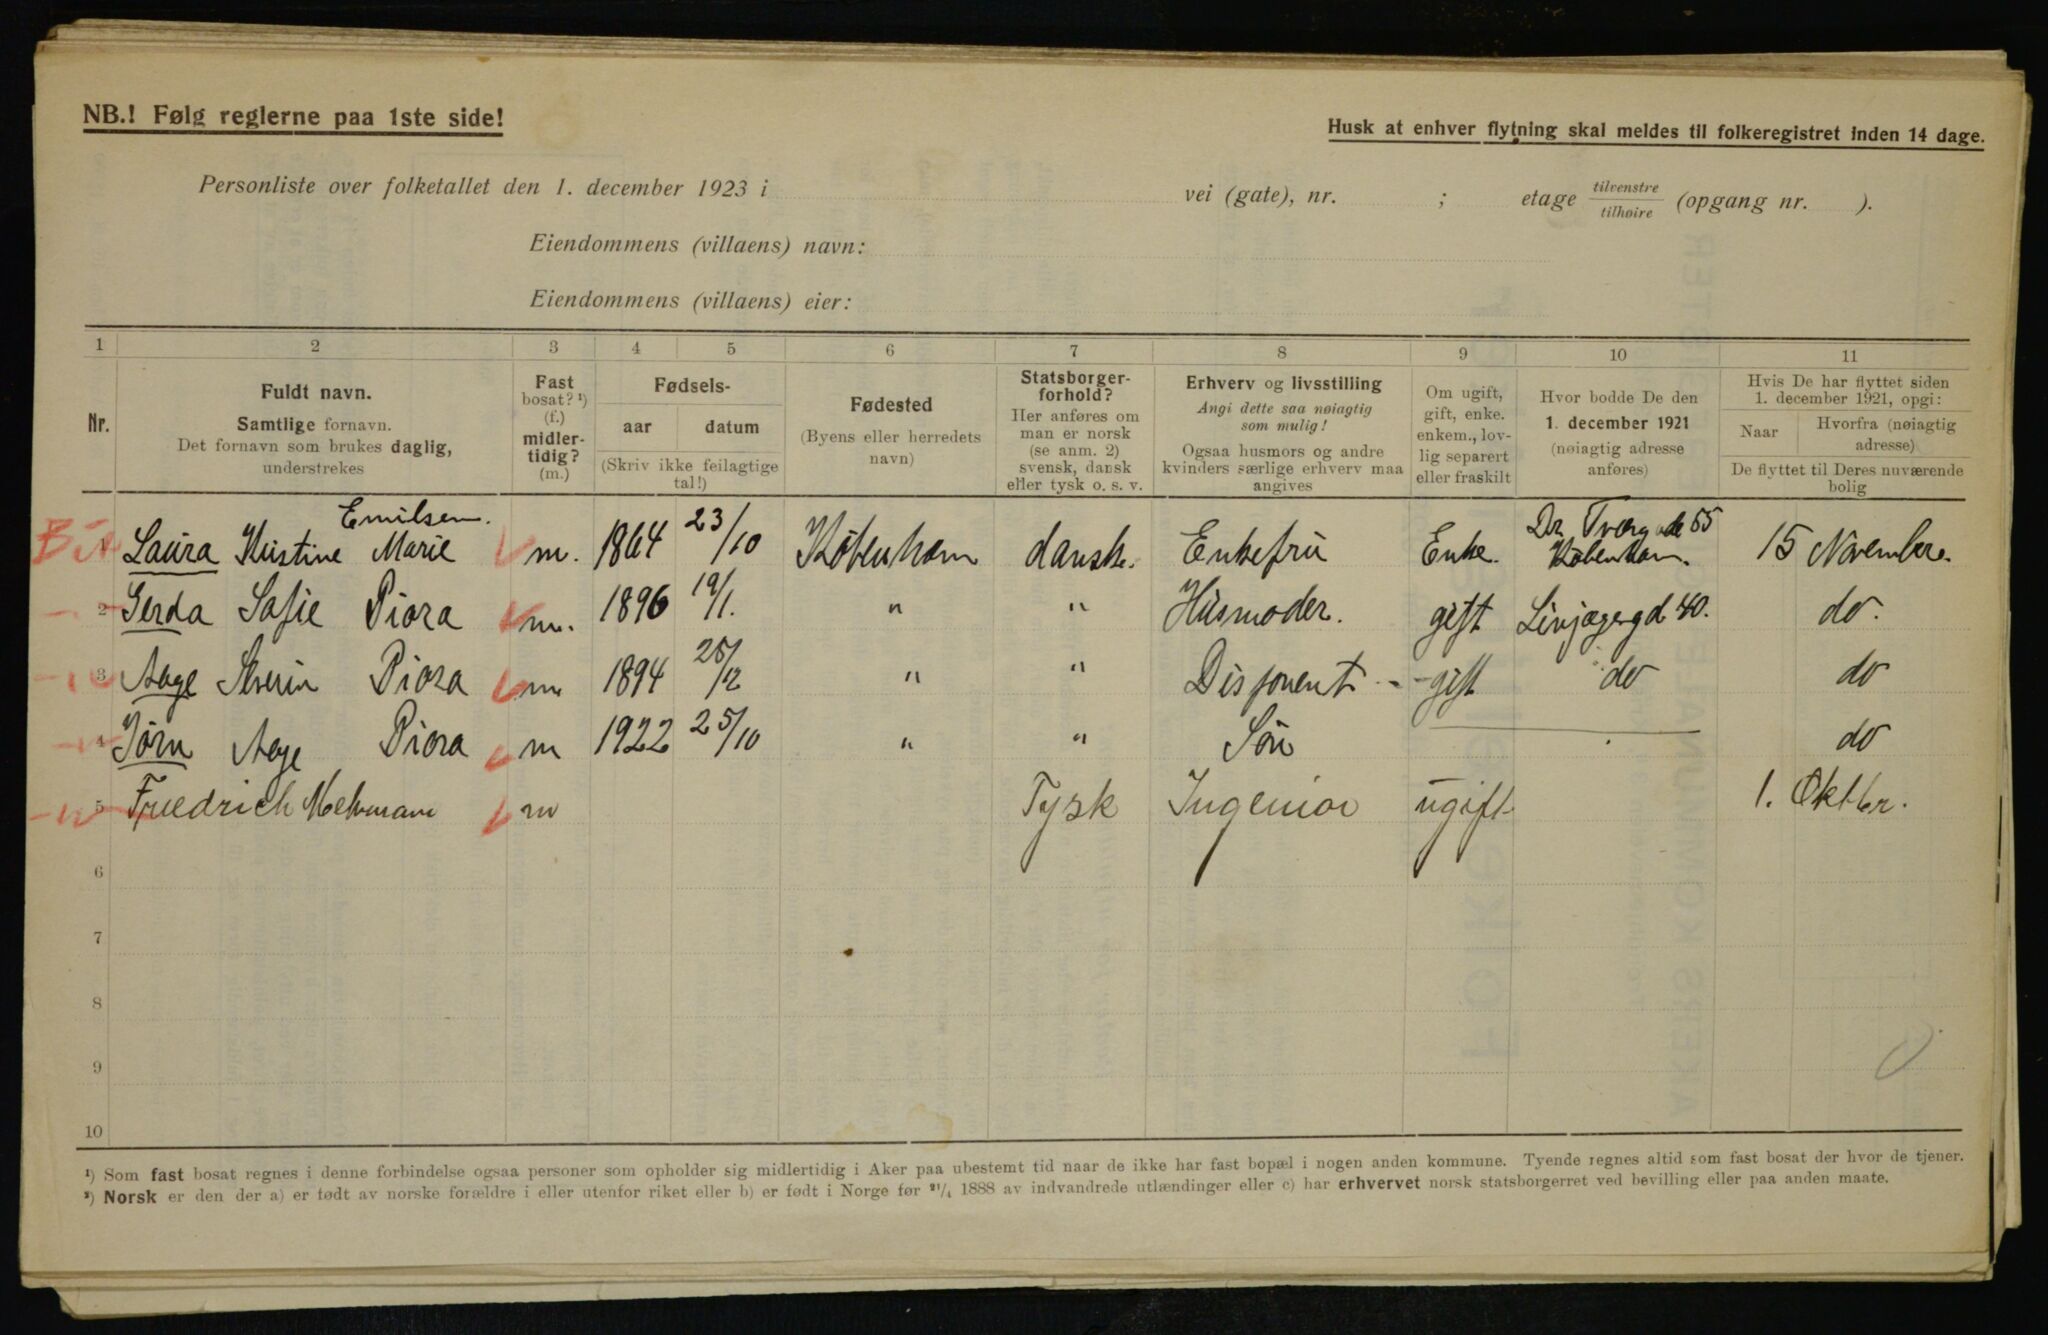 NB.! Følg reglerne paa 1ste side!
Husk at enhver flytning skal meldes til folkeregistret inden 14 dage.
Personliste over folketallet den 1. december 1923 i vei (gate), nr. ; etage tilvenstre/tilhøire (opgang nr. ).
Eiendommens (villaens) navn:
Eiendommens (villaens) eier:
1 2 3 4 5 6 7 8 9 10 11
Nr.
Fuldt navn.
Samtlige fornavn.
Det fornavn som brukes daglig,
understrekes
Fast
bosat? ¹)
(f.)
midler-
tidig?
(m.)
Fødsels-
aar datum
(Skriv ikke feilagtige
tal!)
Fødested
(Byens eller herredets
navn)
Statsborger-
forhold?
Her anføres om
man er norsk
(se anm. 2)
svensk, dansk
eller tysk o. s. v.
Erhverv og livsstilling
Angi dette saa nøiagtig
som mulig!
Ogsaa husmors og andre
kvinders særlige erhverv maa
angives
Om ugift,
gift, enke.
enkem., lov-
lig separert
eller fraskilt
Hvor bodde De den
1. december 1921
(nøiagtig adresse
anføres)
Hvis De har flyttet siden
1. december 1921, opgi:
Naar
Hvorfra (nøiagtig
adresse)
De flyttet til Deres nuværende
bolig
Emilsen.
Laura Kristine Marie m. 1864 23/10 København dansk. Enkefru Enke. Dr. Tværgade 55 København. 15 November.
2 Gerda Sofie Piora m. 1896 19/1. " " Husmoder. gift Livjægergd 40. do.
3 Aage Severin Piora m 1894 25/2 " " Disponent - - gift do do
4 Jørn Aage Piora m 1922 25/10 " " Søn do
5 Friedrich m Tysk Ingeniør ugift 1. Oktbr.
6
7
8
9
10
¹) Som fast bosat regnes i denne forbindelse ogsaa personer som opholder sig midlertidig i Aker paa ubestemt tid naar de ikke har fast bopæl i nogen anden kommune. Tyende regnes altid som fast bosat der hvor de tjener.
²) Norsk er den der a) er født av norske forældre i eller utenfor riket eller b) er født i Norge før ²¹/₄ 1888 av indvandrede utlændinger eller c) har erhvervet norsk statsborgerret ved bevilling eller paa anden maate.